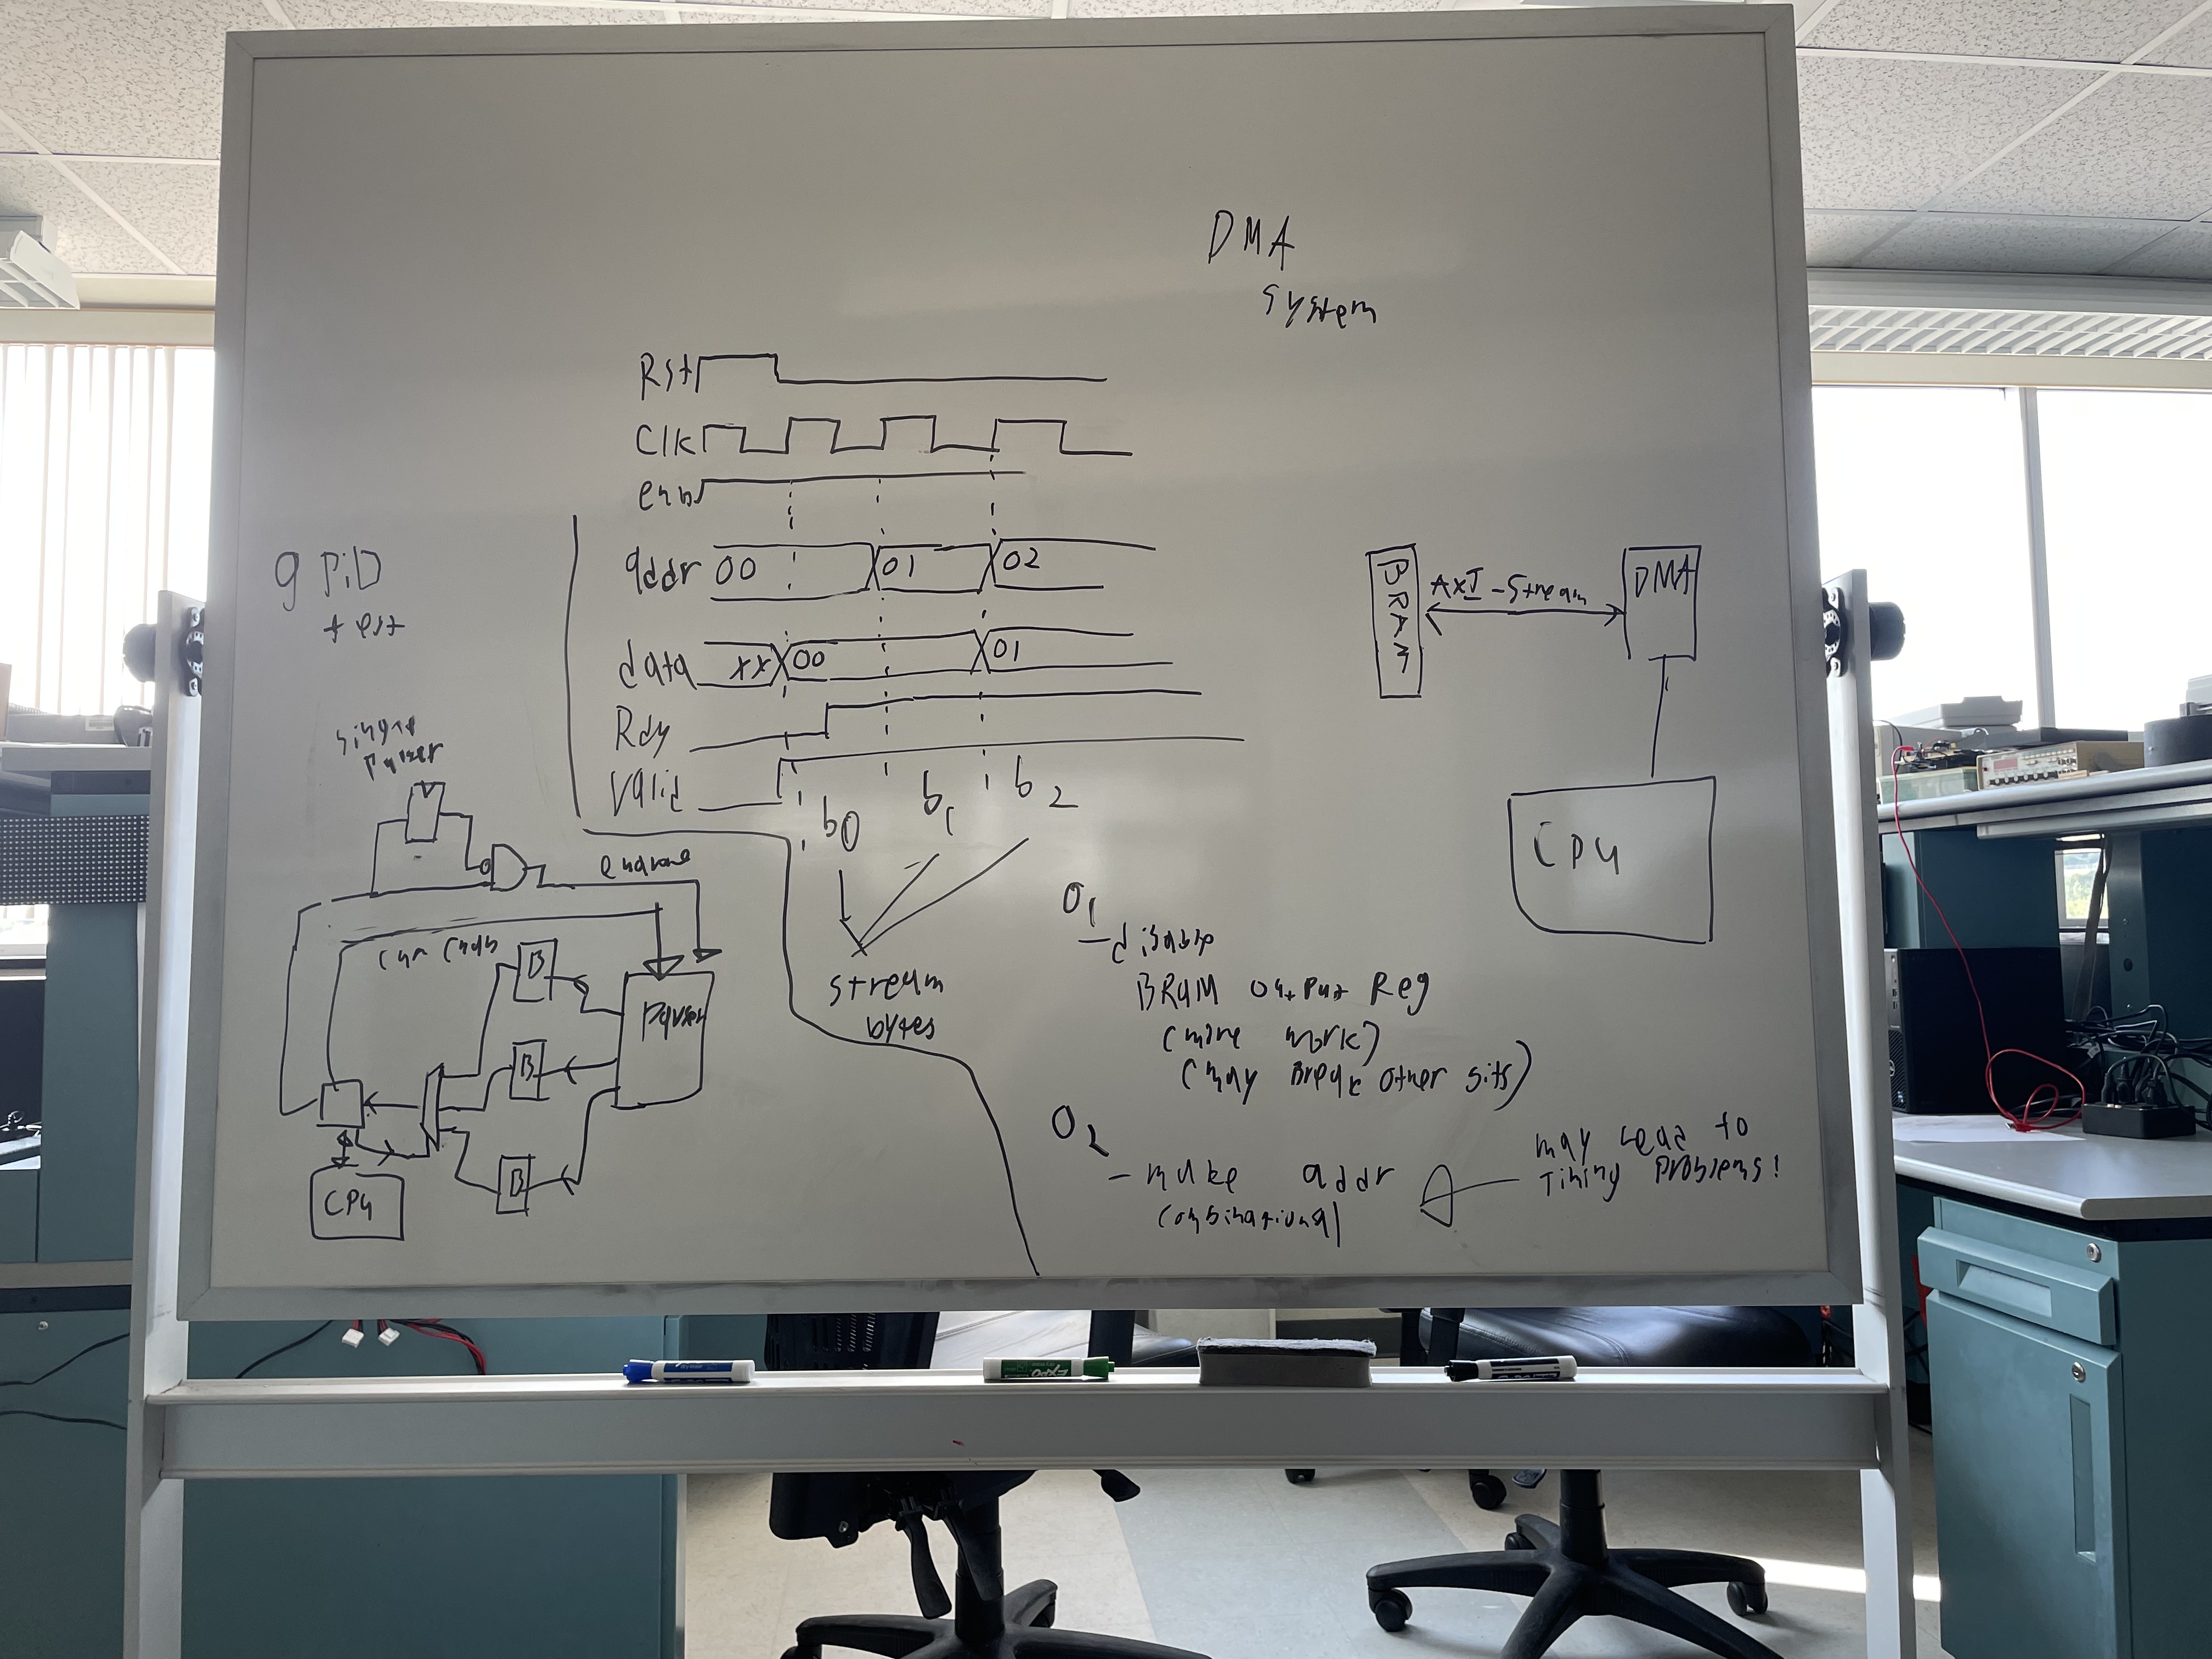 DMA
system
Rst
Clk
enb
addr 00 01 02
data xx 00 01
Rdy
Valid
b0 b1 b2
stream
bytes
gPiO
test
single
pulser
B
B
B
Parser
CPU
BRAM
AXI-Stream
DMA
CPU
O1
- disable
BRAM output Reg
(more work)
(may Break other sits)
O2
- make addr
combinational
may lead to
Timing problems!
EXPO